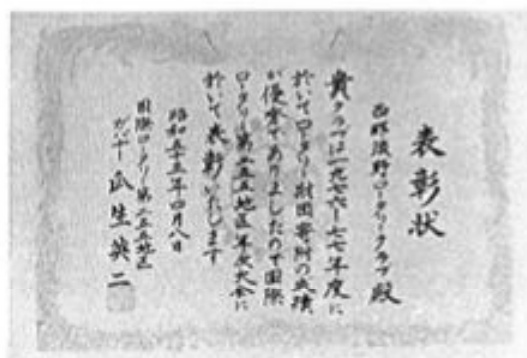 表彰状
西那須野ロータリークラブ殿
貴クラブは一九七六〜七七年度に
於いてロータリー財団寄附の成績
が優秀でありましたので国際
ロータリー第二五五地区年次大会に
於いて表彰いたします
昭和五十三年四月八日
国際ロータリー第二五五地区
ガバナー 瓜生英二